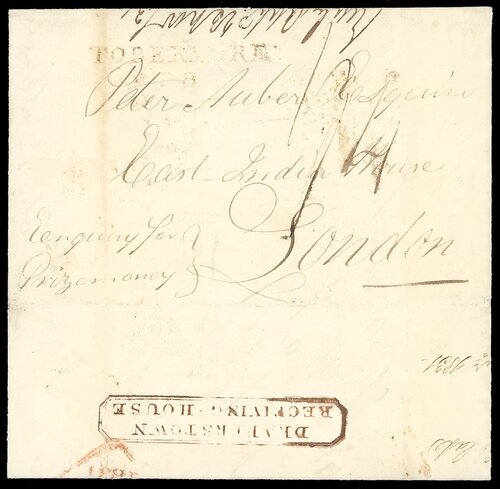 TOBERMORE
Peter Auber, Esquire
East India House
London
Enquiry for
Prizemoney
1831
DRAPERSTOWN
RECEIVING-HOUSE